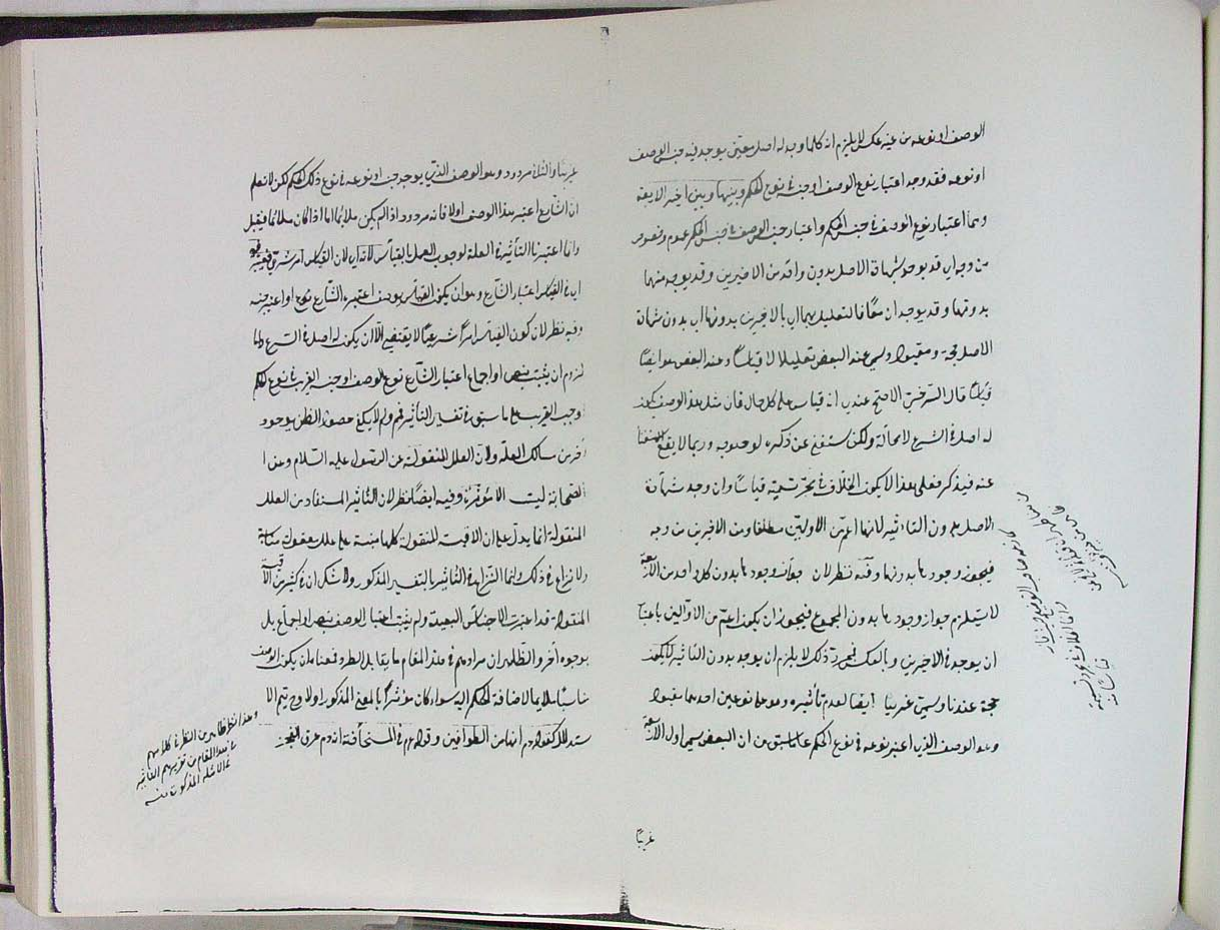 الوصف او نوعه من غير عكس لا يلزم انه كلما وجد له اصل معين يوجد فيه جنس الوصف
او نوعه فقد وجد اعتبار نوع الوصف او جنسه في نوع الحكم وبينها وبين اخيري الاربعة
وهما اعتبار نوع الوصف في جنس الحكم واعتبار جنس الوصف في جنس الحكم عموم وخصوص
من وجه اي قد يوجد شهادة الاصل بدون واحد من الاخيرين وقد يوجد منهما
بدونها وقد يوجدان معًا فالتعليل بهما اي بالاخيرين بدونها اي بدون شهادة
الاصل حجة ومقبول ويسمى عند البعض تعليلا لا قياسًا وعند البعض هو ايضًا
قياس قال السرخسي الاصح عندي انه قياس على كل حال فان مثل هذا الوصف يكون
له اصل في الشرع لا محالة ولكن يستغنى عن ذكره لوضوحه وربما لا يقع الاستغنا
عنه فيذكر فعلى هذا لا يكون الخلاف في مجرد تسميته قياسًا وان وجد شهادة
الاصل بدون التأثير لانها اعم من الاوليين مطلقا ومن الاخيرين من وجه
فيجوز وجودها بدونها وفيه نظر لان جواز وجودها بدون كل واحد من الاربعة
لا يستلزم جواز وجودها بدون المجموع فيجوز ان يكون اعم من الاوليين باعتبار
ان يوجد في الاخيرين وبالعكس فمجرد ذلك لا يلزم ان يوجد بدون التأثير لا يكون
حجة عندنا ويسمى غريبا ايضا لعدم تأثيره وهو على نوعين احدهما مقبول
وهو الوصف الذي اعتبر نوعه في نوع الحكم على ما سبق من ان البعض يسمي اول الاربعة
غريبًا
غريبًا والثاني مردود وهو الوصف الذي يوجد جنسه او نوعه في نوع ذلك الحكم لكن لا نعلم
ان الشارع اعتبر هذا الوصف او لا فانه مردود اذا لم يكن ملائمًا اما اذا كان ملائمًا فيقبل
وانما اعتبرنا التأثير في العلة لوجوب العمل بالقياس لانه اي لان القياس امر شرعي فيعتبر فيه
اي في القياس اعتبار الشارع وهو ان يكون القياس بوصف اعتبره الشارع نوعه او اعتبر جنسه
وفيه نظر لان كون القياس امرًا شرعيًا لا يقتضي الا ان يكون له اصل في الشرع واما
لزوم ان يثبت بنص او اجماع اعتبار الشارع نوع الوصف او جنسه القريب في نوع الحكم
وجنسه القريب على ما سبق في تفسير التأثير فمم ولم لا يكفي حصول الظن بوجوه
أُخر من مسالك العلة ولان العلل المنقولة عن الرسول عليه السلام وعن
الصحابة ليست الا مؤثرة وفيه ايضًا نظر لان التأثير المستفاد من العلل
المنقولة انما يدل على ان الاقيسة المنقولة كلها مبنية على علل معقولة مناسبة
ولا نزاع في ذلك وانما النزاع في التأثير بالتفسير المذكور ولا شك ان في كثير من الاقيسة
المنقولة قد اعتبرت الاجناس البعيدة ولم يثبت اعتبار الوصف بنص او اجماع بل
بوجوه أخر والظاهر ان مرادهم في هذا المقام ما يقابل الطرد فعناه ان يكون الوصف
مناسبًا ملايمًا لاضافة الحكم اليه سواء كان مؤثرًا بالمعنى المذكور او لا وح يتم الا
ستدلال كقوله عم انها من الطوافين وقوله عم في المستحاضة انه دم عرق انفجر
وهذا نظر ظاهر من النظر في كلامهم
في هذا المقام من تقريرهم التأثير
في الامثلة المذكورة منه